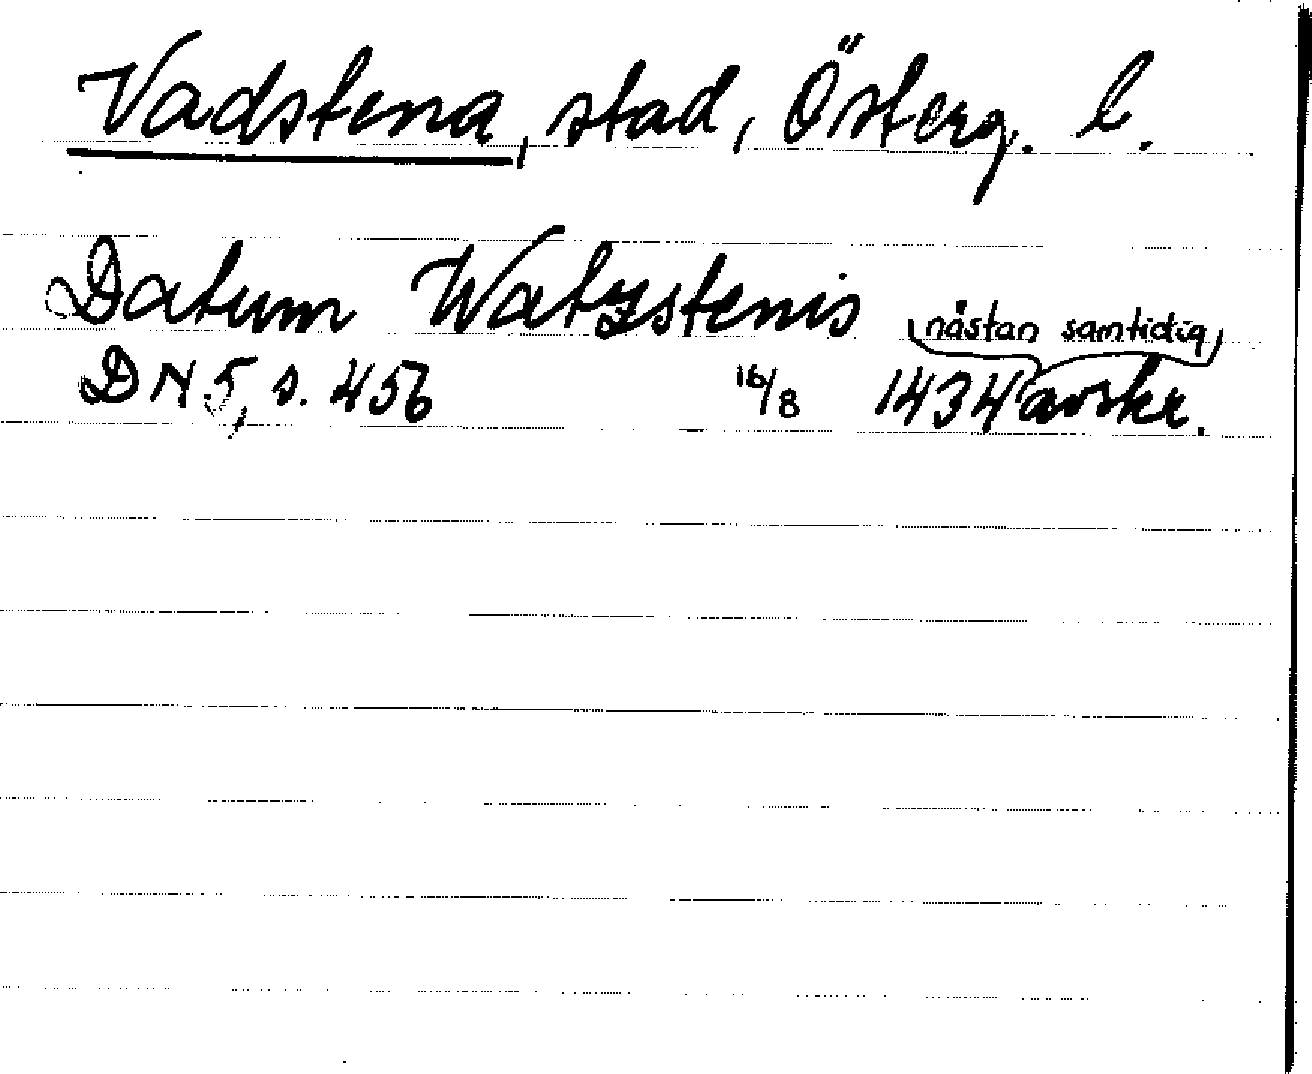 Vadstena, stad, Österg. l.
Datum Watzstenis
DN 5, s. 456 16/8 1434 nästan samtidig avskr.